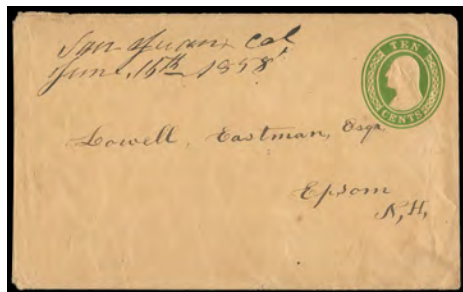 San Juan Cal
June, 15th 1858
TEN
CENTS
Lowell, Eastman, Esqr
Epsom
N,H,